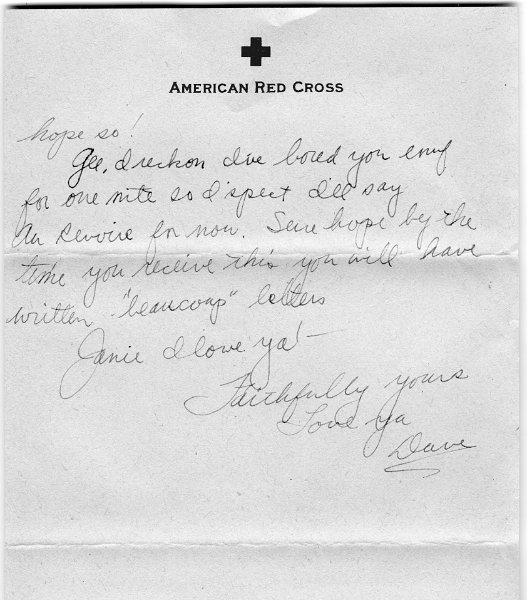 AMERICAN RED CROSS
hope so!
Gee, I reckon I've bored you enuf
for one nite so I 'spect I'll say
Au Revoire for now. Sure hope by the
time you receive this you will have
written "beaucoup" letters
Janie I love ya! -
Faithfully yours
Love ya
Dave